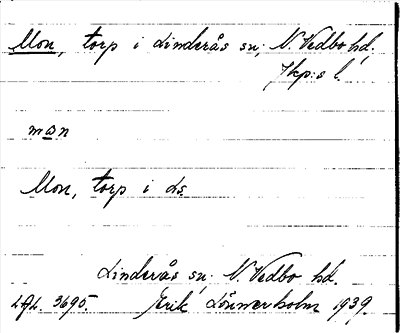 Mon, torp i Linderås sn; N. Vedbo hd,
Jkp:s l.
mon
Mon, torp i Ls
Linderås sn. N. Vedbo hd.
Lgh. 3695. Erik Lönnerholm 1939.